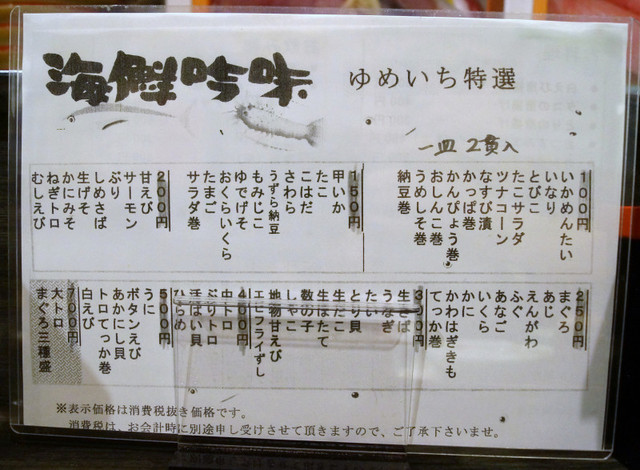 海鮮吟味
ゆめいち特選
一皿 2貫入
100円
いかめんたい
いなり
とびこ
たこサラダ
ツナコーン
なすび漬
かっぱ巻
かんぴょう巻
おしんこ巻
うめしそ巻
納豆巻
150円
甲いか
たこ
こはだ
さわら
うずら納豆
もみじこ
ゆでげそ
おくらいくら
たまご
サラダ巻
200円
甘えび
サーモン
ぶり
しめさば
生げそ
かにみそ
ねぎトロ
むしえび
250円
まぐろ
あじ
えんがわ
ふぐ
あなご
いくら
かに
かわはぎきも
てっか巻
300円
生さば
うなぎ
たい
とり貝
生だこ
生ほたて
数の子
しゃこ
地物甘えび
エビフライずし
400円
中トロ
ぶりトロ
活ばい貝
ひらめ
500円
うに
ボタンえび
あかにし貝
トロてっか巻
白えび
700円
大トロ
まぐろ三種盛
※表示価格は消費税抜き価格です。
消費税は、お会計時に別途申し受けさせて頂きますので、ご了承下さいませ。